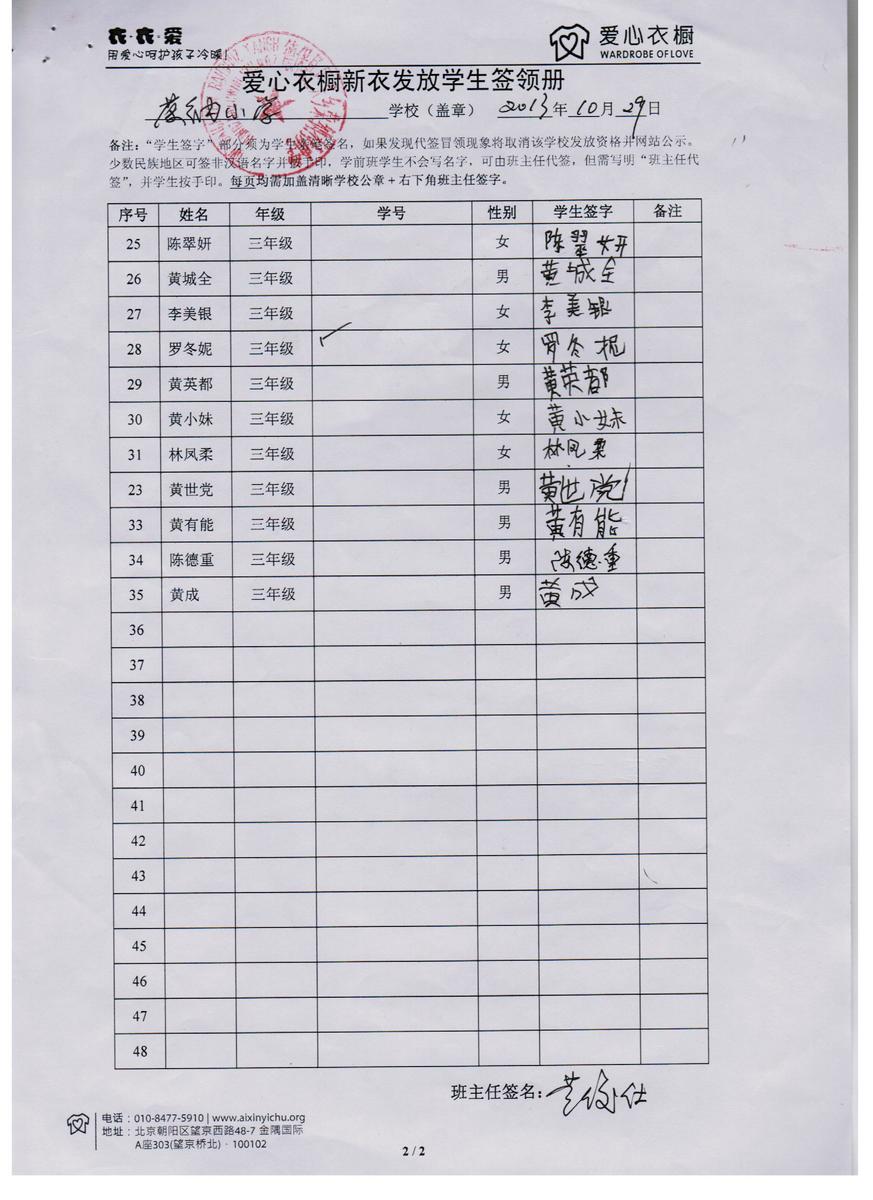 衣·衣·爱
用爱心呵护孩子冷暖!
爱心衣橱
WARDROBE OF LOVE
爱心衣橱新衣发放学生签领册
小学 学校（盖章） 2013年10月29日
备注：“学生签字”部分须为学生亲笔签名，如果发现代签冒领现象将取消该学校发放资格并网站公示。
少数民族地区可签非汉语名字并按手印，学前班学生不会写名字，可由班主任代签，但需写明“班主任代
签”，并学生按手印。每页均需加盖清晰学校公章+右下角班主任签字。
序号 姓名 年级 学号 性别 学生签字 备注
25 陈翠妍 三年级 女 陈翠妍
26 黄城全 三年级 男 黄城全
27 李美银 三年级 女 李美银
28 罗冬妮 三年级 ✓ 女 罗冬妮
29 黄英都 三年级 男 黄英都
30 黄小妹 三年级 女 黄小妹
31 林凤柔 三年级 女 林凤柔
23 黄世党 三年级 男 黄世党
33 黄有能 三年级 男 黄有能
34 陈德重 三年级 男 陈德重
35 黄成 三年级 男 黄成
36
37
38
39
40
41
42
43
44
45
46
47
48
班主任签名：
电话：010-8477-5910 | www.aixinyichu.org
地址：北京朝阳区望京西路48-7 金隅国际
A座303(望京桥北)·100102
2 / 2